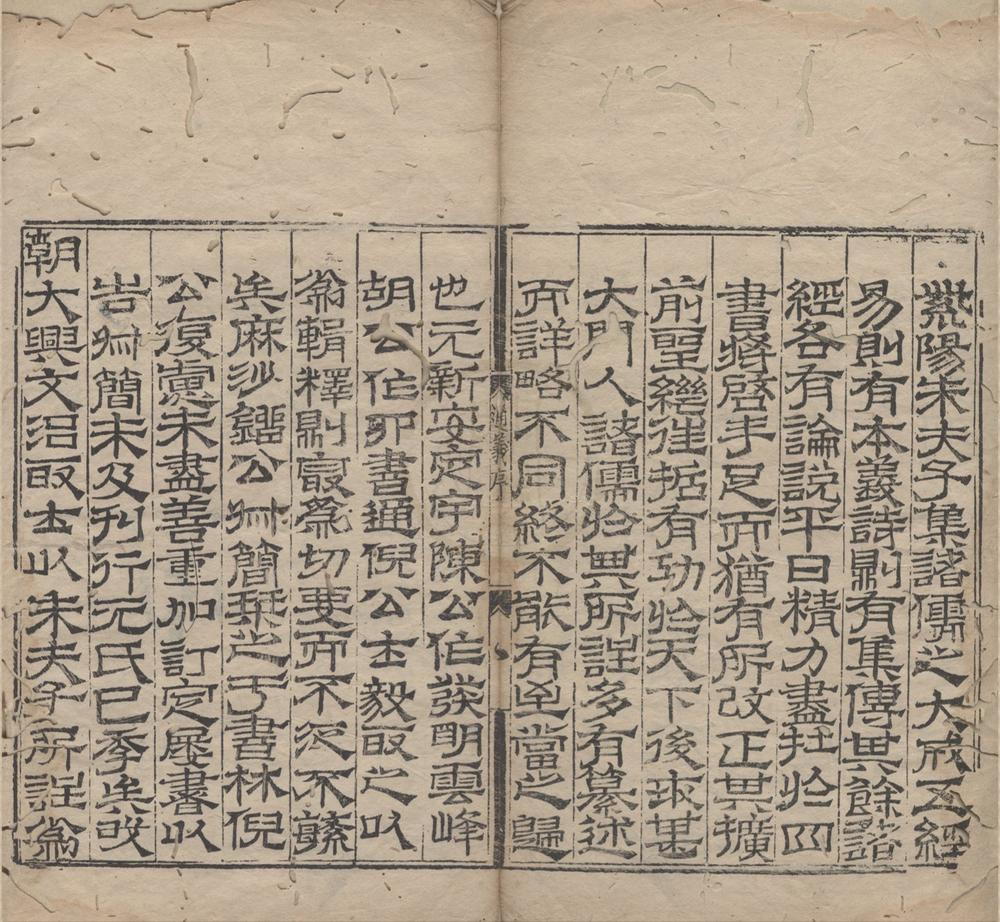 紫陽朱夫子集諸儒之大成五經
易則有本義詩則有集傳其餘諸
經各有論說平日精力盡在於四
書將啓手足而猶有所改正其擴
前聖繼往有功於天下後世甚
大門人諸儒於其所註多有纂述
而詳略不同終不能有至當之歸
通義序
也元新安定宇陳公作發明雲峰
胡公作四書通倪公士毅取之以
為輯釋則最為切要而不泛不
矣麻沙鐂公叔簡栞之于書林倪
公復慮未盡善重加訂定屢書以
告叔簡未及刊行元氏已季矣我
朝大興文治取士以朱夫子所註為